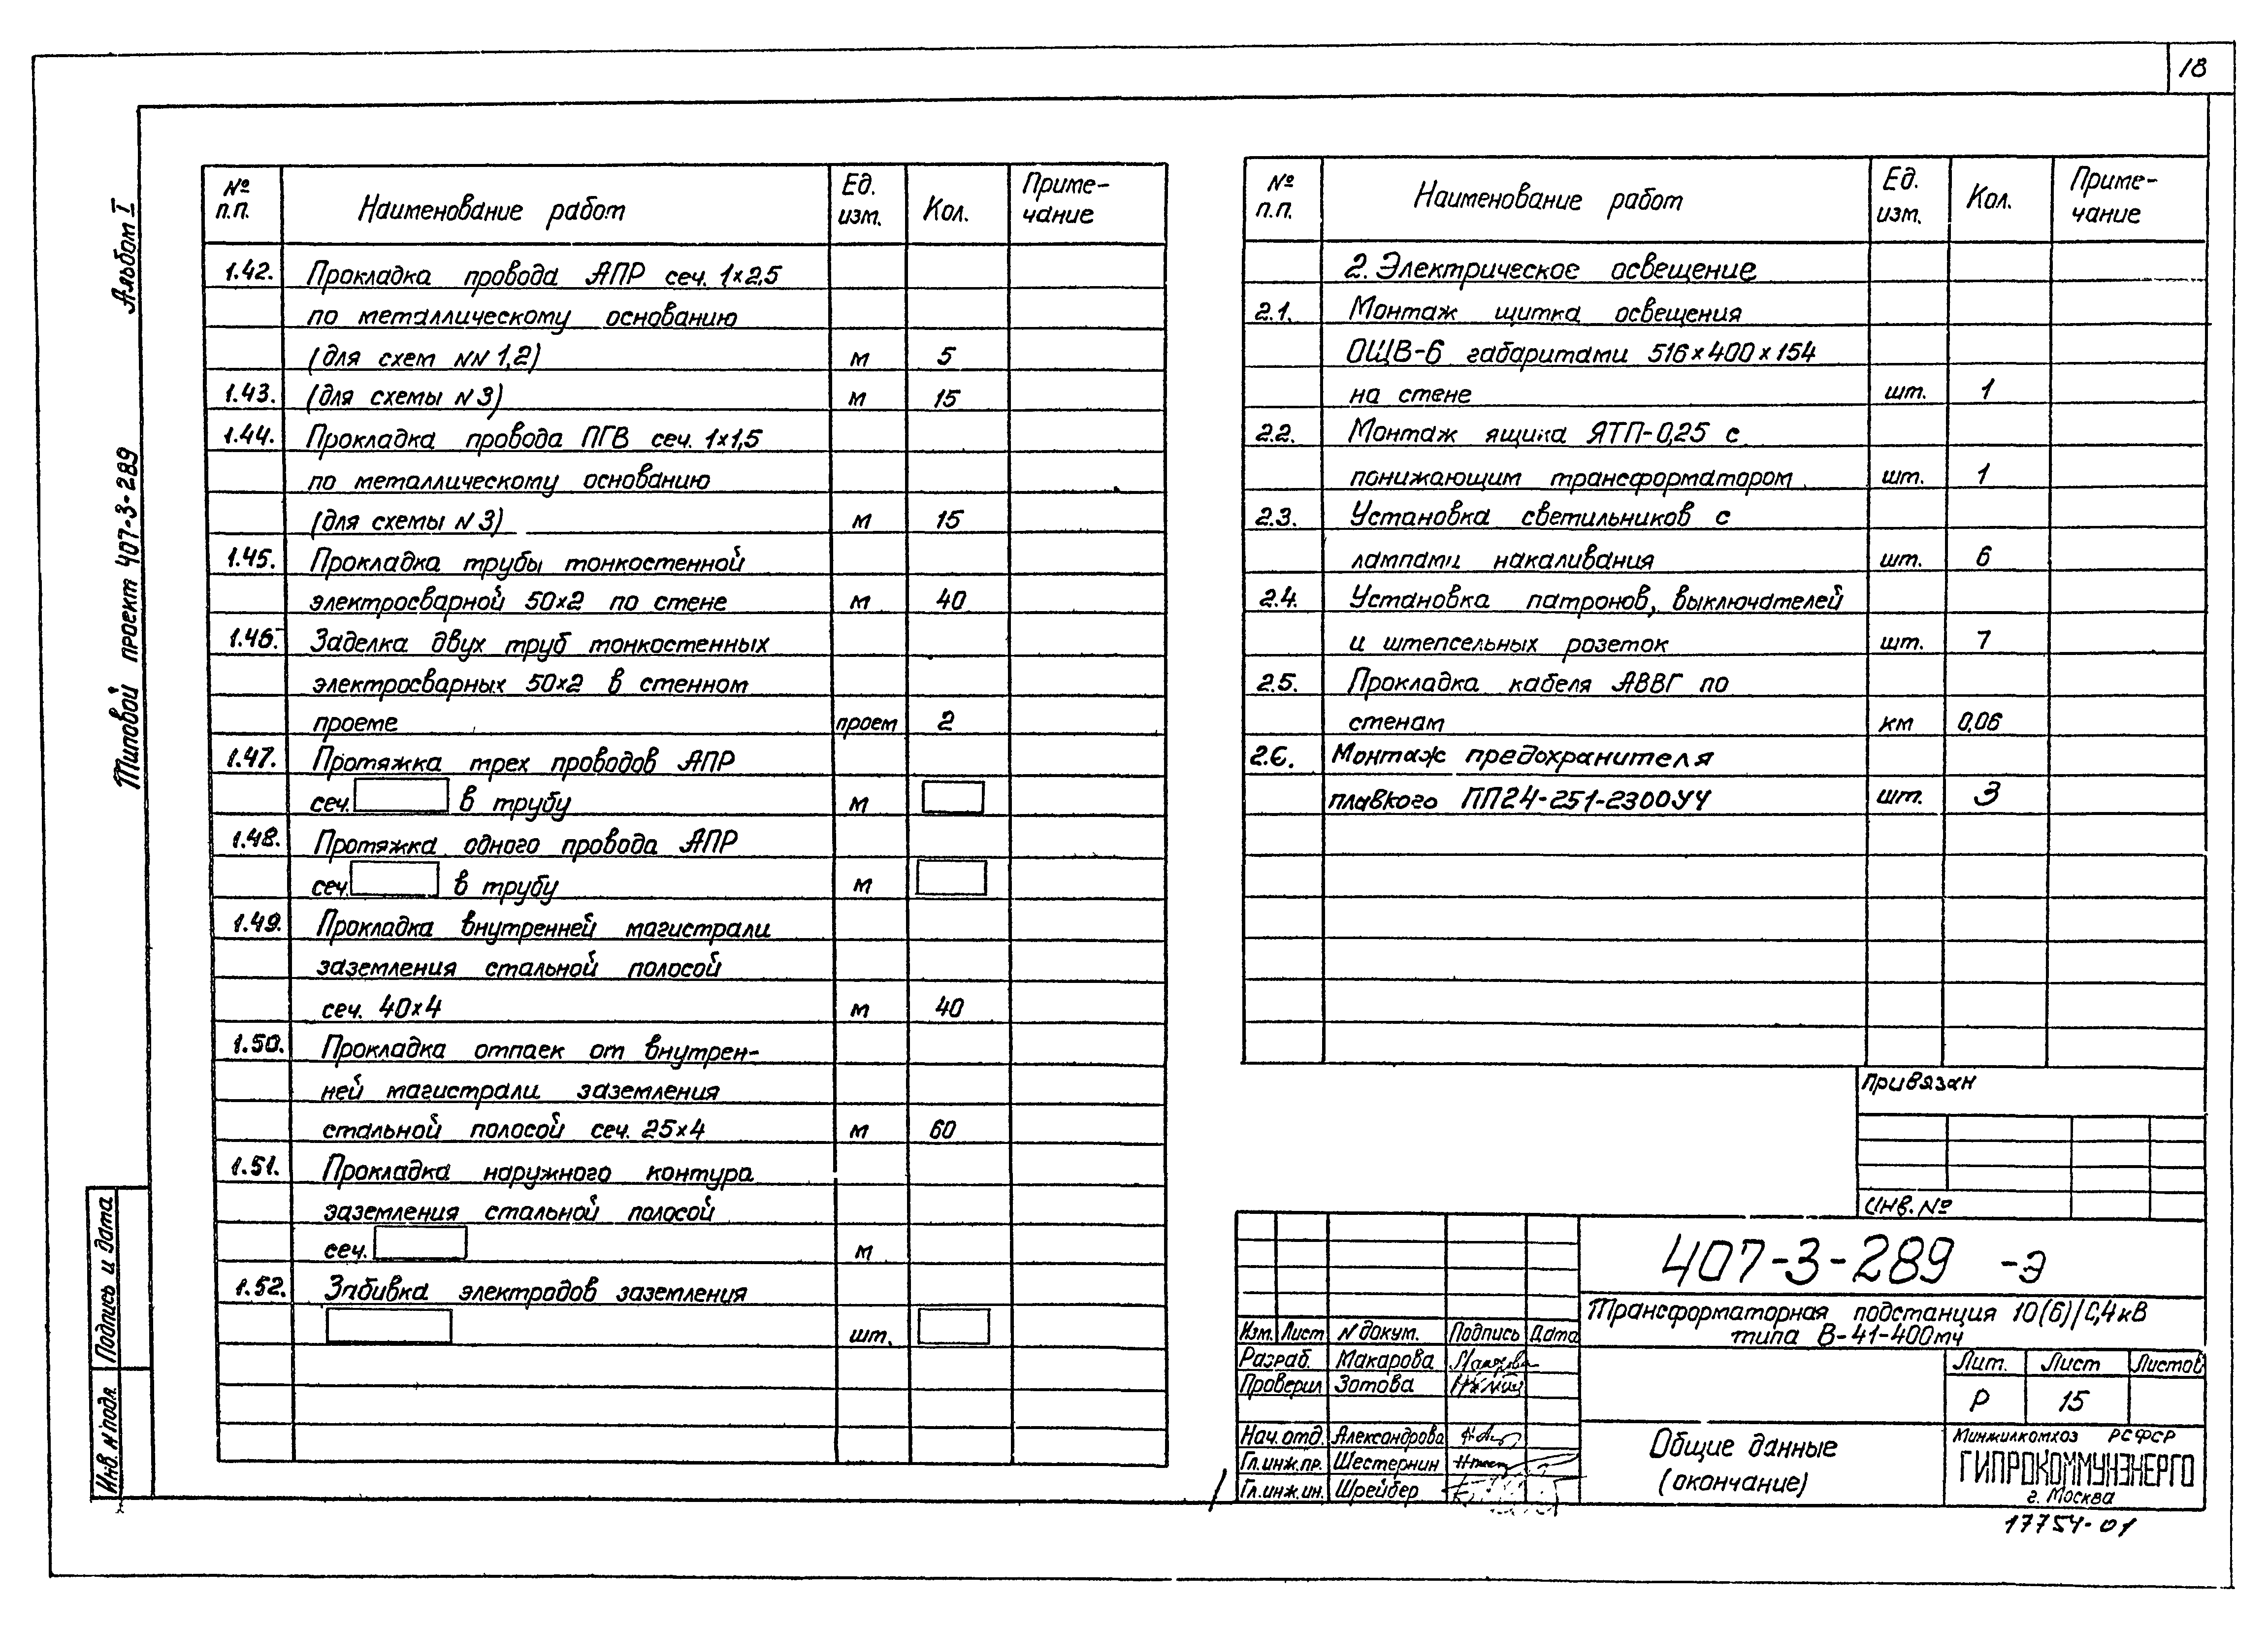 18
Альбом I
Типовой проект 407-3-289
Подпись и дата
Инв. N подл.
№ п.п. Наименование работ Ед. изм. Кол. Приме-чание
1.42. Прокладка провода АПР сеч. 1×2,5
по металлическому основанию
(для схем NN 1,2) м 5
1.43. (для схемы N 3) м 15
1.44. Прокладка провода ПГВ сеч. 1×1,5
по металлическому основанию
(для схемы N 3) м 15
1.45. Прокладка трубы тонкостенной
электросварной 50×2 по стене м 40
1.46. Заделка двух труб тонкостенных
электросварных 50×2 в стенном
проеме проем 2
1.47. Протяжка трех проводов АПР
сеч. в трубу м
1.48. Протяжка одного провода АПР
сеч. в трубу м
1.49. Прокладка внутренней магистрали
заземления стальной полосой
сеч. 40×4 м 40
1.50. Прокладка отпаек от внутрен-
ней магистрали заземления
стальной полосой сеч. 25×4 м 60
1.51. Прокладка наружного контура
заземления стальной полосой
сеч. м
1.52. Забивка электродов заземления
шт.
№ п.п. Наименование работ Ед. изм. Кол. Приме-чание
2. Электрическое освещение
2.1. Монтаж щитка освещения
ОЩВ-6 габаритами 516×400×154
на стене шт. 1
2.2. Монтаж ящика ЯТП-0,25 с
понижающим трансформатором шт. 1
2.3. Установка светильников с
лампами накаливания шт. 6
2.4. Установка патронов, выключателей
и штепсельных розеток шт. 7
2.5. Прокладка кабеля АВВГ по
стенам км 0,06
2.6. Монтаж предохранителя
плавкого ПП24-251-2300У4 шт. 3
Привязан
Инв. №
407-3-289 -Э
Трансформаторная подстанция 10(6)/0,4кВ
типа В-41-400мч
Изм. Лист N докум. Подпись Дата
Разраб. Макарова
Проверил Зотова
Нач. отд. Александрова
Гл. инж. пр. Шестернин
Гл. инж. ин. Шрейбер
Лит. Лист Листов
Р 15
Общие данные
(окончание)
Минжилкомхоз РСФСР
ГИПРОКОММУНЭНЕРГО
г. Москва
17754-01